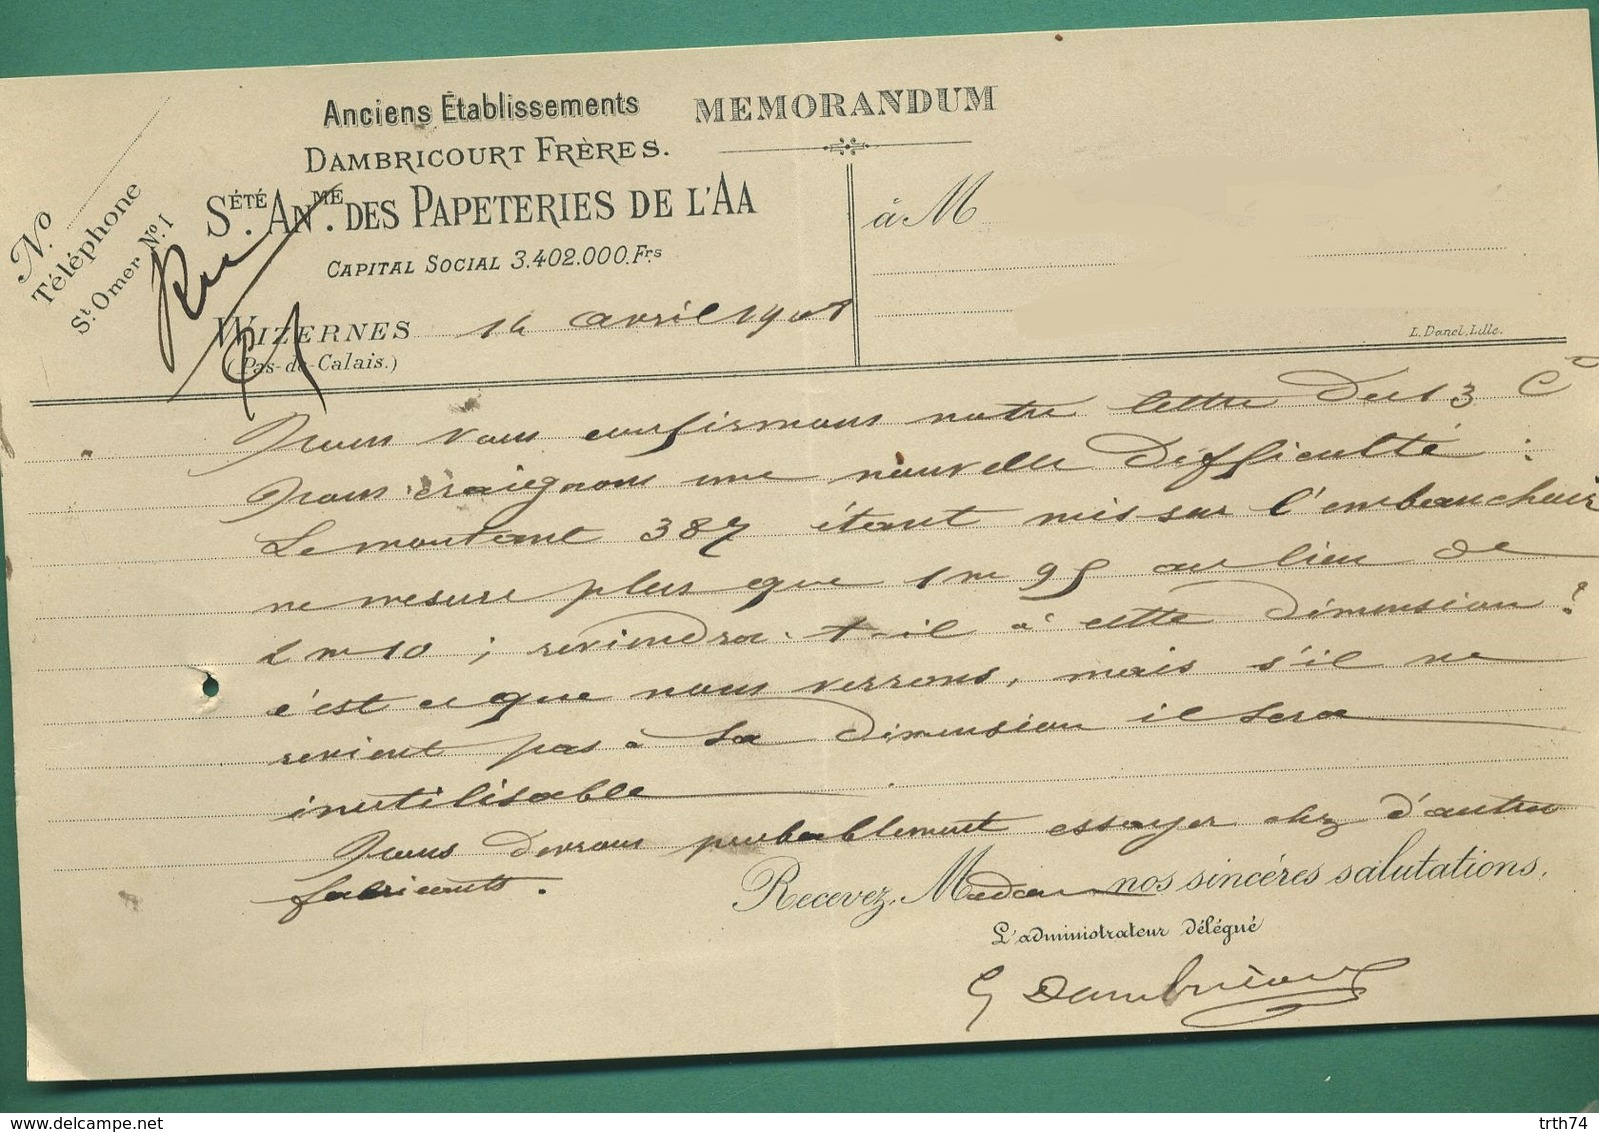 Anciens Établissements
DAMBRICOURT FRÈRES.
SÉTÉ. ANME. DES PAPETERIES DE L'AA
CAPITAL SOCIAL 3.402.000.Frs
No
Téléphone
St. Omer No. 1
MEMORANDUM
à M
WIZERNES 14 avril 1908
(Pas-de-Calais.)
L. Danel, Lille.
Nous vous confirmons notre lettre du 13 Ct
Nous craignons une nouvelle difficulté :
Le montant 387 étant mis sur l'embauchoir
ne mesure plus que 1 m 95 au lieu de
2 m 10 ; reviendra-t-il à cette dimension ?
c'est ce que nous verrons, mais s'il ne
revient pas à sa dimension il sera
inutilisable
Nous devrons probablement essayer chez d'autres
fabricants.
Recevez, M nos sincères salutations,
L'administrateur délégué
G Dambricourt
trth74